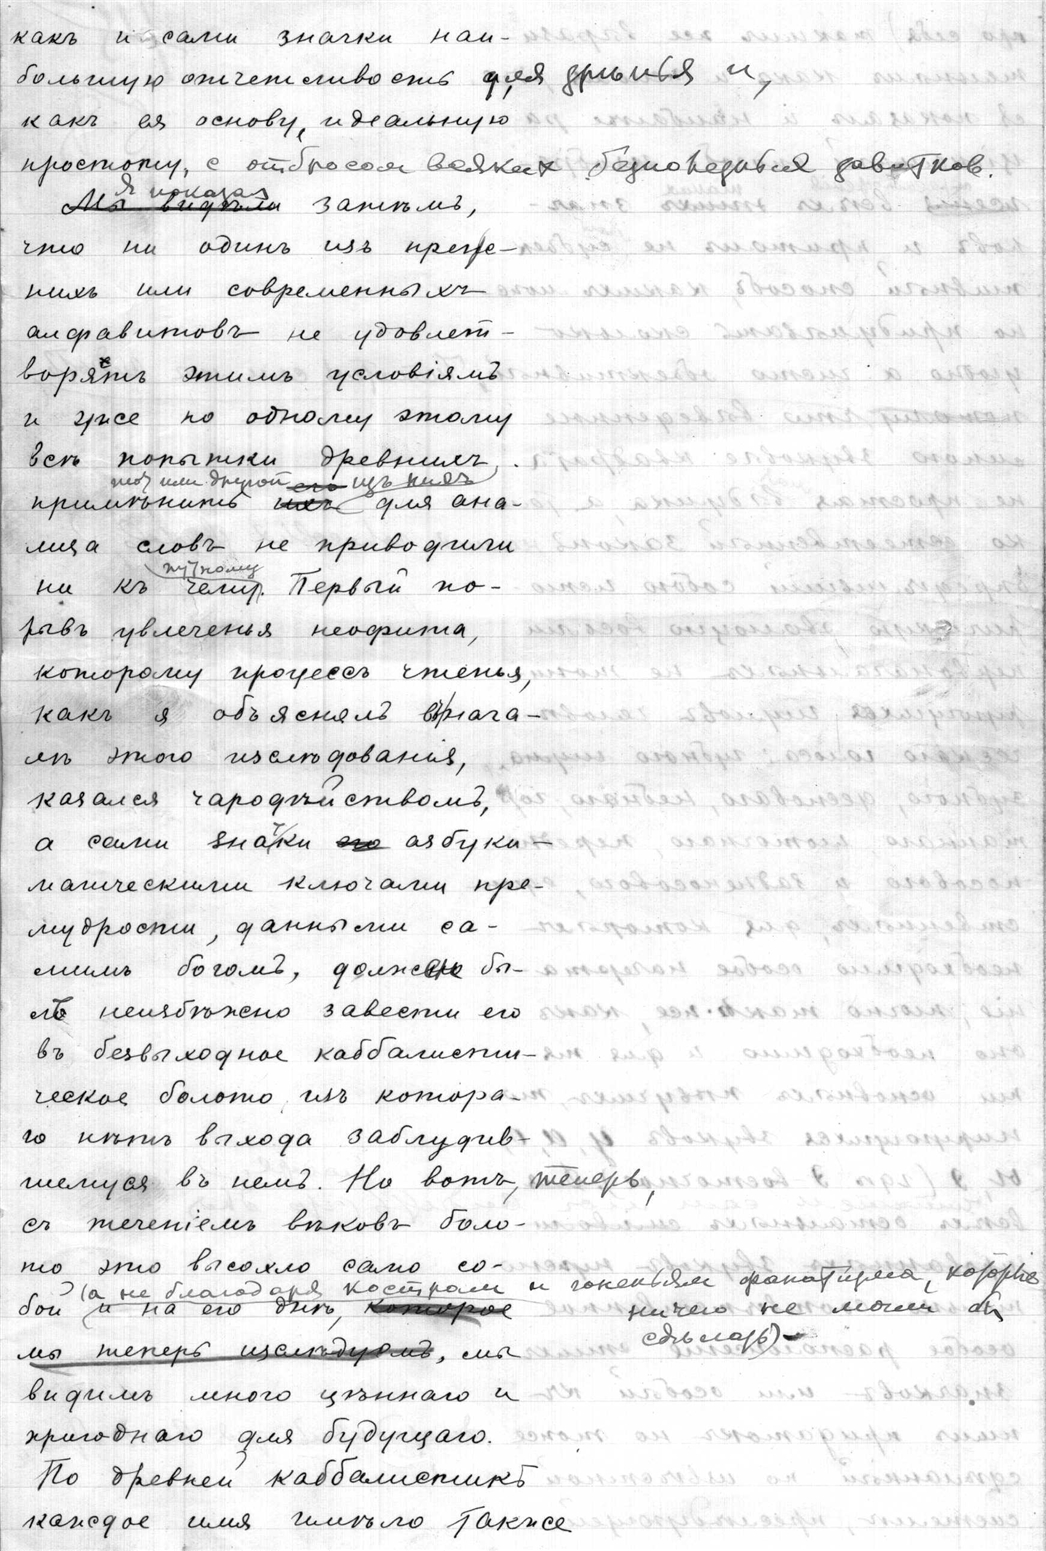 какъ и сами значки наи-
большую отчетливость для зрѣнья и,
какъ ея основу, идеальную
простоту, с отбросом всяких безполезных завитков.
Я показал
Мы видѣли затѣмъ,
что ни одинъ изъ преж-
нихъ или современныхъ
алфавитовъ не удовлет-
воряетъ этимъ условіямъ
и уже по одному этому
всѣ попытки древнихъ
тот или другой его изъ них
примѣнить ихъ для ана-
лиза словъ не приводили
путному
ни къ чему. Первый по-
рывъ увлеченья неофита,
которому процессъ чтенья,
какъ я объяснялъ въ нача-
лѣ этого изслѣдованія,
казался чародѣйствомъ,
а сами значки его азбуки
магическими ключами пре-
мудрости, данными са-
мимъ богомъ, должен бы-
лъ неизбѣжно завести его
въ безвыходное каббалисти-
ческое болото, изъ котора-
го нѣтъ выхода заблудив-
шемуся въ немъ. Но вотъ, теперь,
съ теченіемъ вѣковъ боло-
то это высохло само со-
(а не благодаря кострам и гоненьям фанатизма, которые
бой и на его днѣ, которое ничего не могли бы
сдѣлать)
мы теперь изслѣдуемъ, мы
видимъ много цѣннаго и
пригоднаго для будущаго.
По древней каббалистикѣ
каждое имя имѣло также